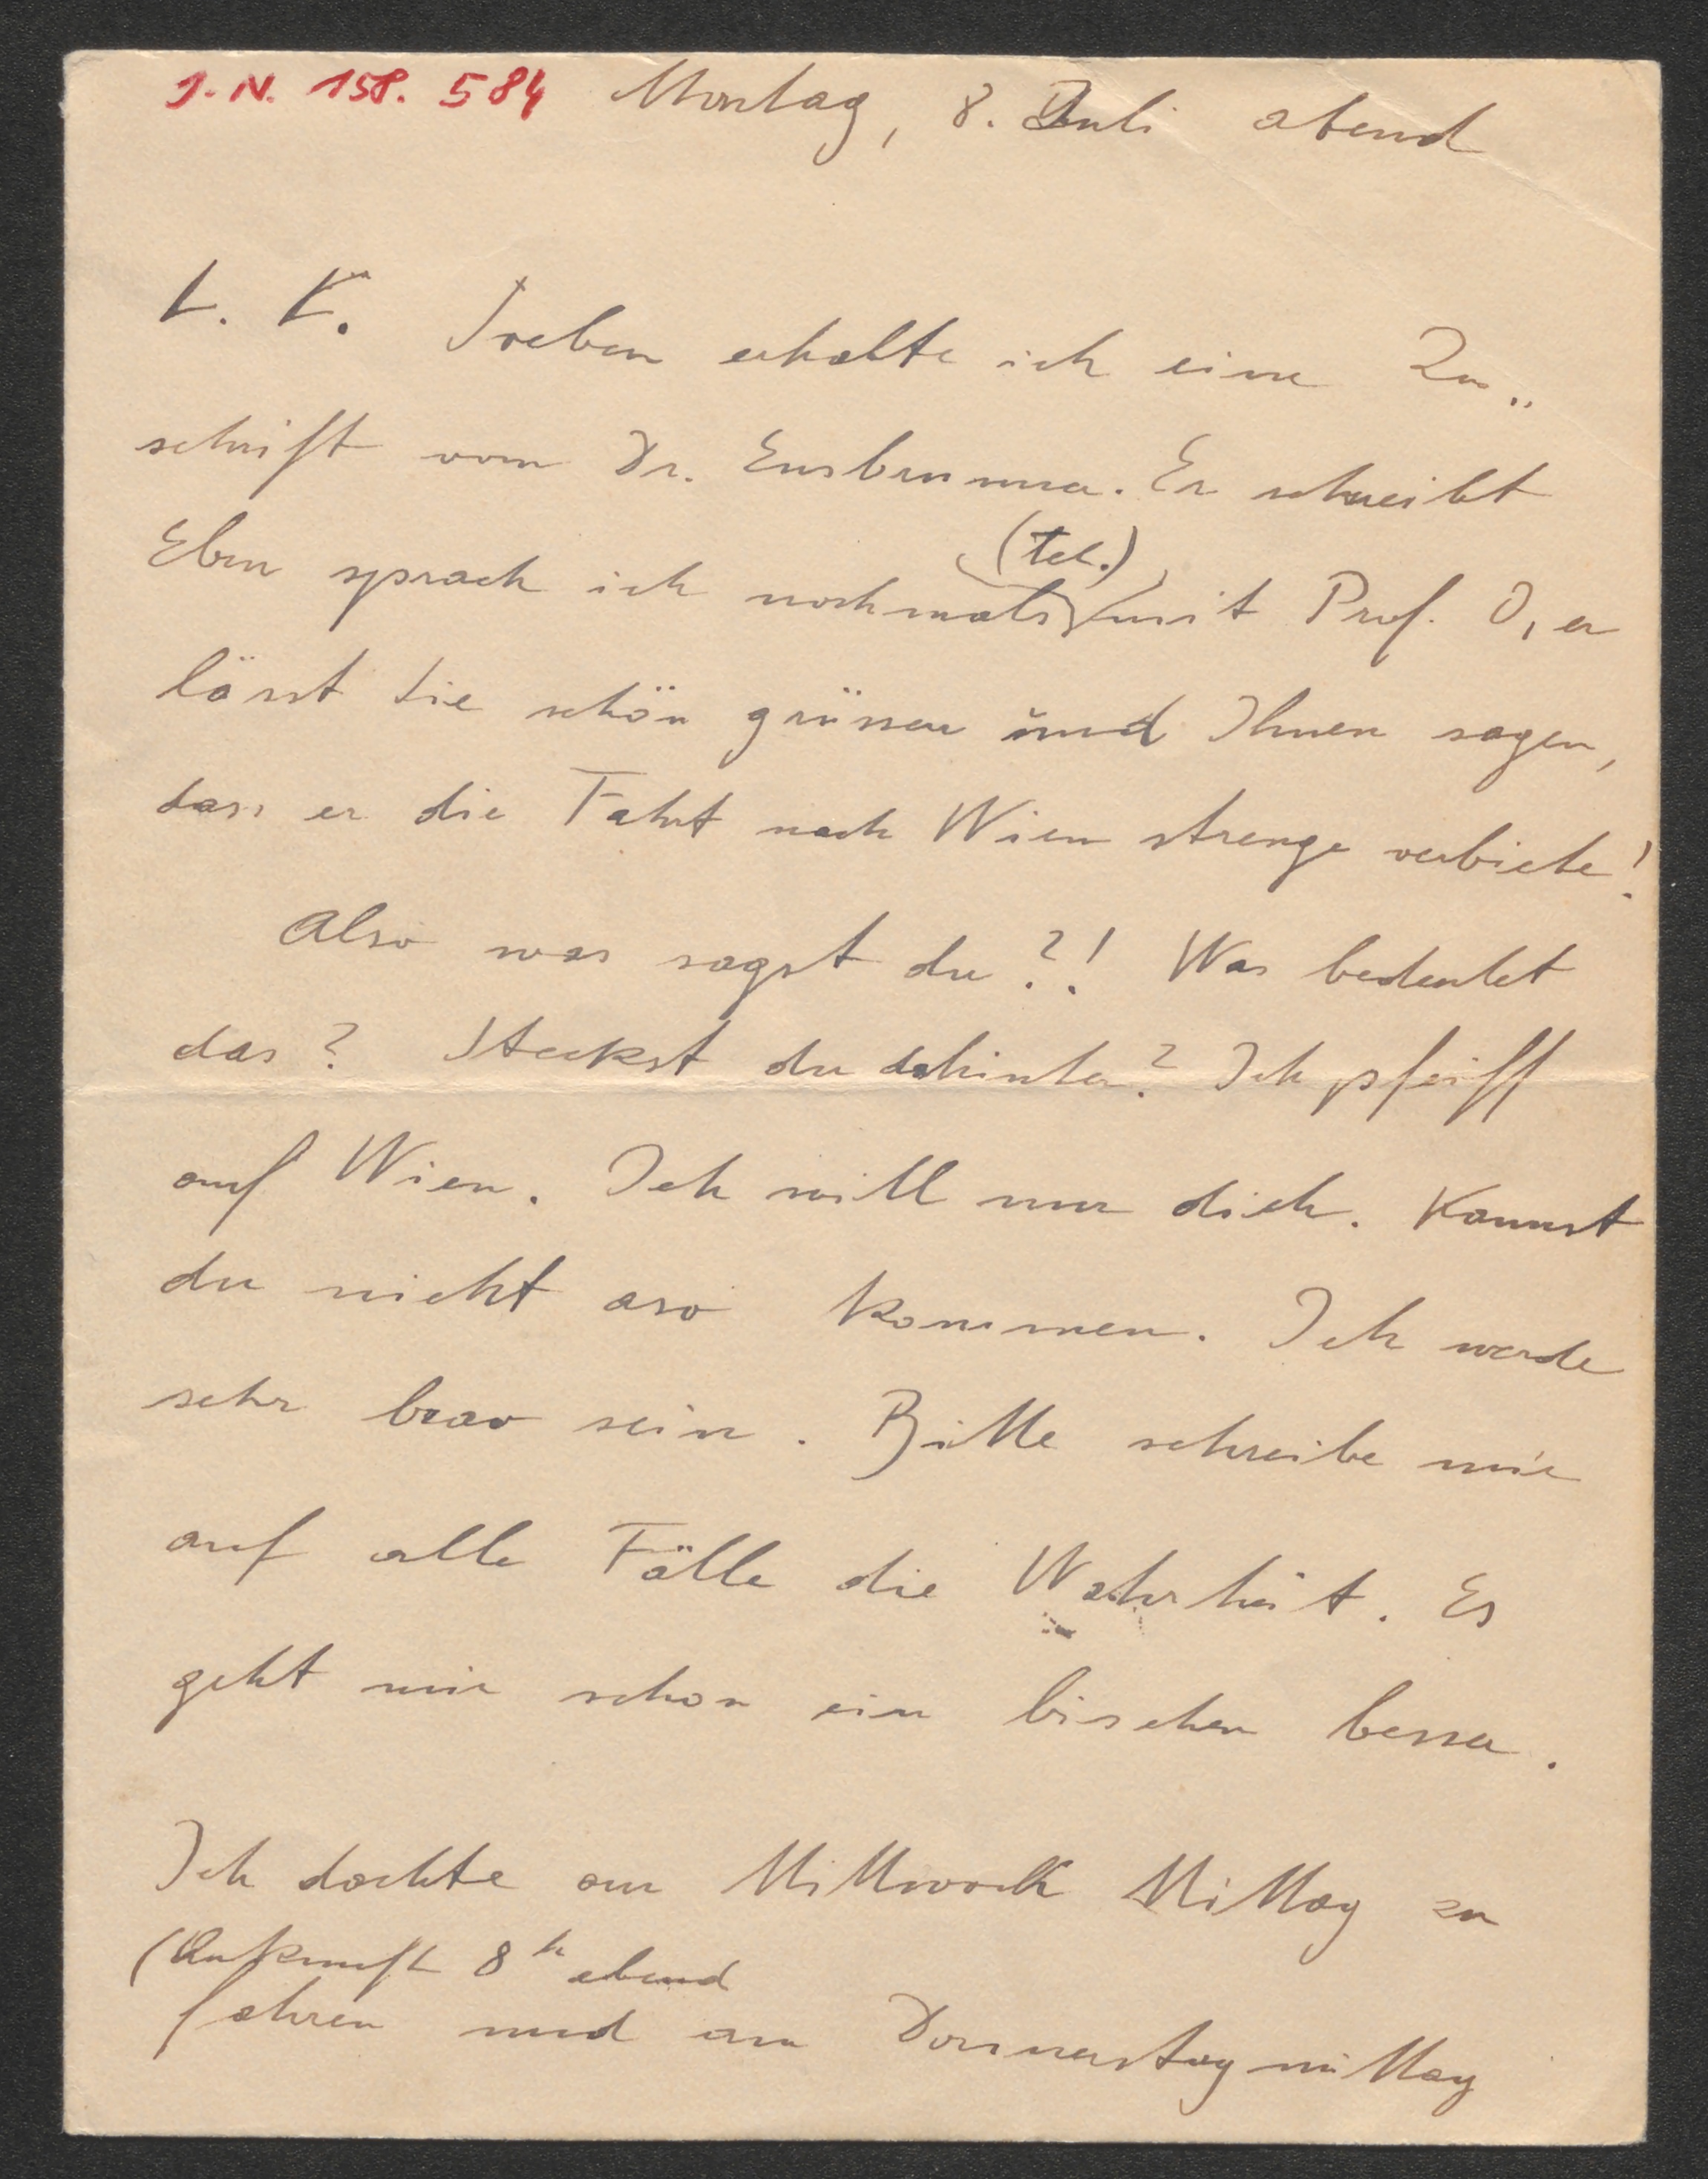 J. N. 158. 584 Montag, 8. Juli abend
L. K. Soeben erhalte ich eine Zu„
schrift vom Dr. Ensbrunner. Er schreibt
(tel.)
Eben sprach ich nochmals mit Prof. O, er
lässt Sie schön grüssen und Ihnen sagen,
dass er die Fahrt nach Wien strenge verbiete!
Also was sagst du?! Was bedeutet
das? Steckst du dahinter? Ich pfeiff
auf Wien. Ich will nur dich. Kannst
du nicht aso kommen. Ich werde
sehr brav sein. Bitte schreibe mir
auf alle Fälle die Wahrheit. Es
geht mir schon ein bischen besser.
Ich dachte am Mittwoch Mittag zu
(Ankunft 8h abend
fahren und am Donnerstag mittag